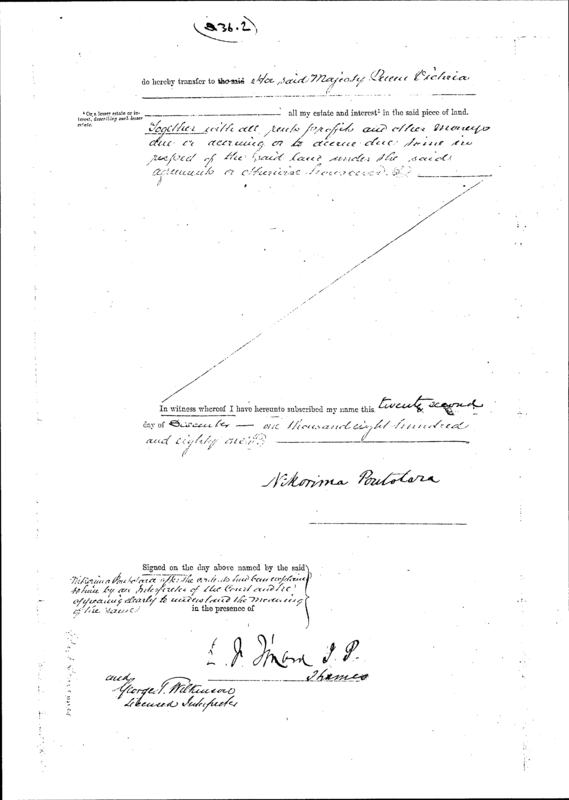 236.2
do hereby transfer to the said Her said Majesty Queen Victoria
¹ Or a lesser estate or interest, describing such lesser estate.
all my estate and interest¹ in the said piece of land.
Together with all rents profits and other moneys
due or accruing or to accrue due in
respect of the said land under the said
agreements or otherwise howsoever.
In witness whereof I have hereunto subscribed my name this twenty second
day of December — one thousand eight hundred
and eighty one
Nikorima Poutotara
Signed on the day above named by the said
Nikorima Poutotara after the contents had been explained
to him by an Interpreter of the Court and he
appearing clearly to understand the meaning
of the same
in the presence of
J.P.
Thames
and
George T. Wilkinson
Licensed Interpreter